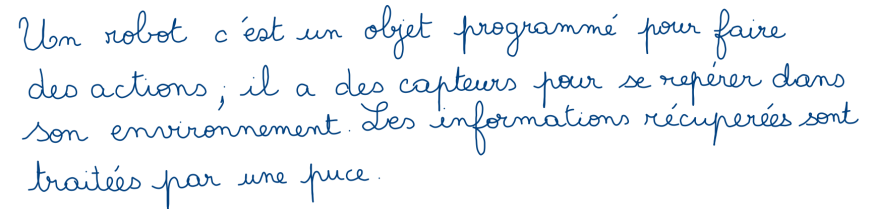 Un robot c'est un objet programmé pour faire
des actions, il a des capteurs pour se repérer dans
son environnement. Les informations récuperées sont
traitées par une puce.